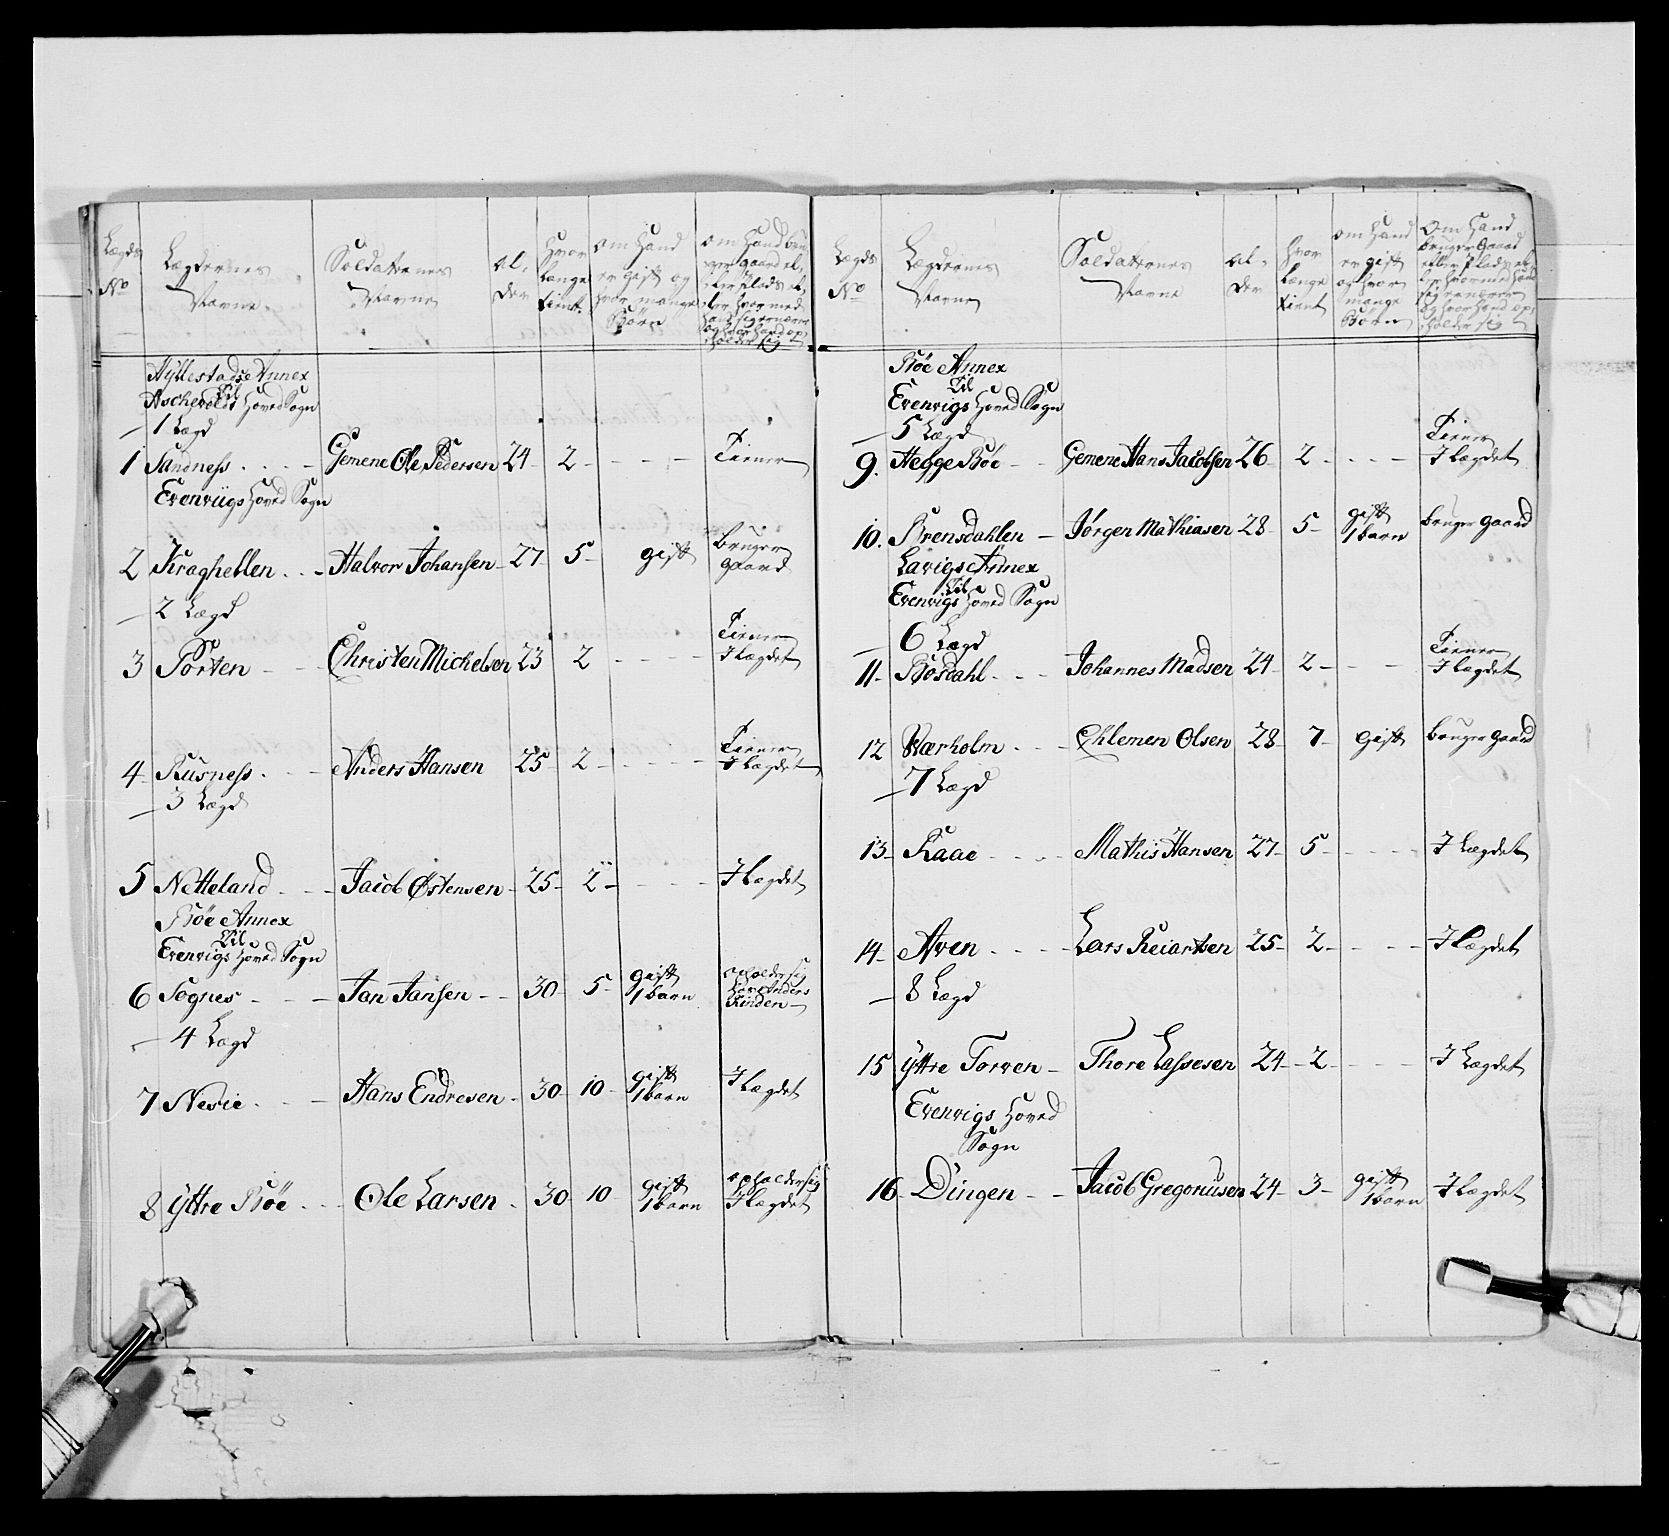 Lægds No
Lægdernes Nafne
Soldaternes Nafne
Al- der
Hvor længe tient
om Hand er gift og hvor mange Börn
om Hand bru- ger gaard el- ler Plads el- ler hvormed hand sig ernærer og hvor hand op- holder sig
Hÿllestadse Annex
Til
Aschevolds Hoved Sogn
1 Lægd
1 Sandness Gemene Ole Pedersen 24 2 Tiener
Evenviigs Hoved Sogn
2 Kraghellen Halvor Johansen 27 5 gift bruger gaard
2 Lægd
3 Porten Christen Michelsen 23 2 Tiener I Lægdet
4 Risness Anders Hansen 25 2 Tiener I Lægdet
3 Lægd
5 Netteland Jacob Østensen 25 2 I Lægdet
Böe Annex
Til
Evenvigs Hoved Sogn
6 Sognes Jan Jansen 30 5 gift 1 barn opholder sig Anders
4 Lægd
7 Nesie Hans Endresen 30 10 gift 1 barn I Lægdet
8 Yttre Böe Ole Larsen 30 10 gift 1 barn opholder sig I Lægdet
Lægds No
Lægdernes Nafne
Soldaternes Nafne
Al- der
hvor længe tient
om Hand er gift og hvor mange Börn
Om Hand bruger Gaard eller Plads el- ler hvormed Hand sig ernærer og hvor Hand op- holder sig
Böe Annex
Til
Evenvigs Hoved Sogn
5 Lægd
9. Hegge Böe Gemene Hans Jacobsen 26 2 Tiener I Lægdet
10. Brensdahlen Jörgen Mathiasen 28 5 gift 1 barn bruger gaard
Lavigs Annex
Til
Evenvigs Hoved Sogn
6 Lægd
11 Bosdahl Johannes Madsen 24 2 Tiener I Lægdet
12 Værholm Chlemen Olsen 28 7 gift bruger gaard
7 Lægd
13 Raae Mathis Hansen 27 5 I Lægdet
14 Aven Lars Reiartsen 25 2 I Lægdet
8 Lægd
15 Yttre Torven Thore Lassesen 24 2 I Lægdet
Evenvigs Hoved
Sogn
16 Dingen Jacob Gregoriusen 24 3 gift 1 barn I Lægdet